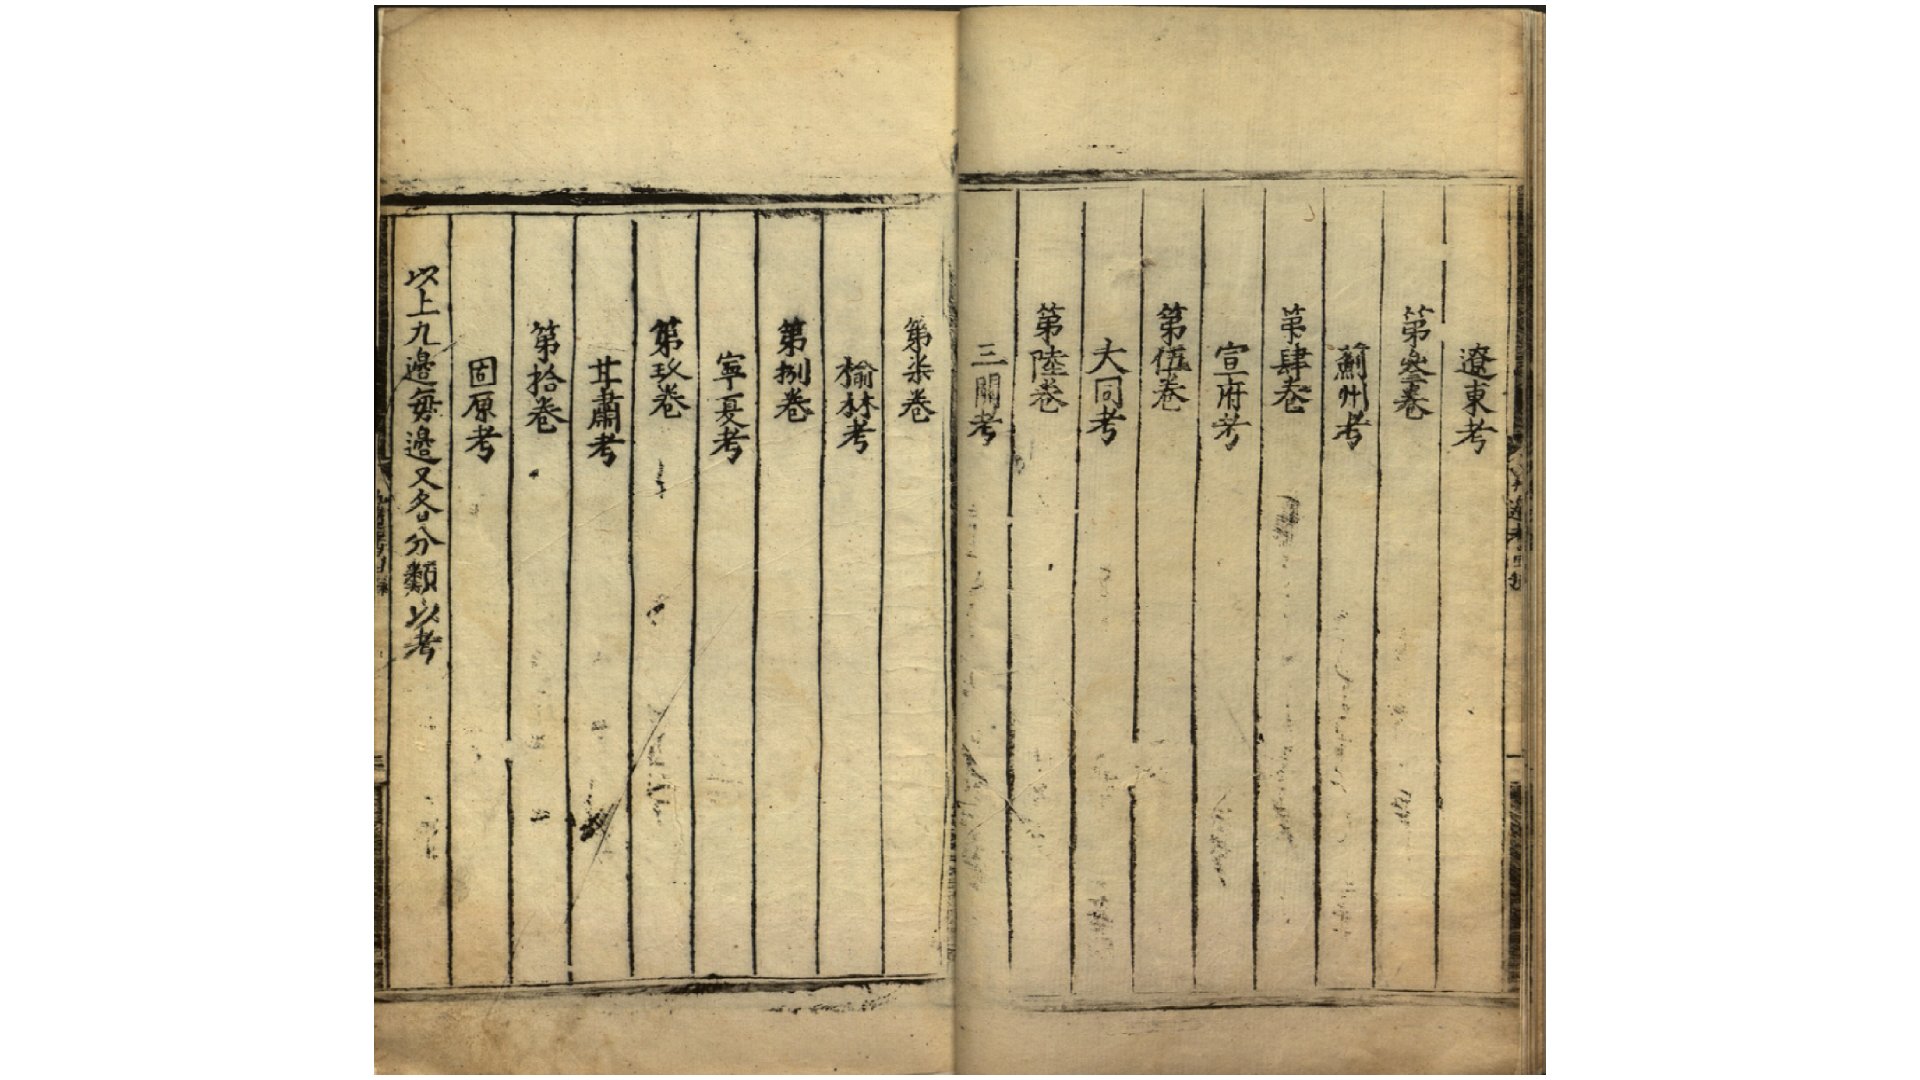 遼東考
第叄卷
薊州考
第肆卷
宣府考
第伍卷
大同考
第陸卷
三關考
第柒卷
榆林考
第捌卷
寧夏考
第玖卷
甘肅考
第拾卷
固原考
以上九邊每邊又各分類以考